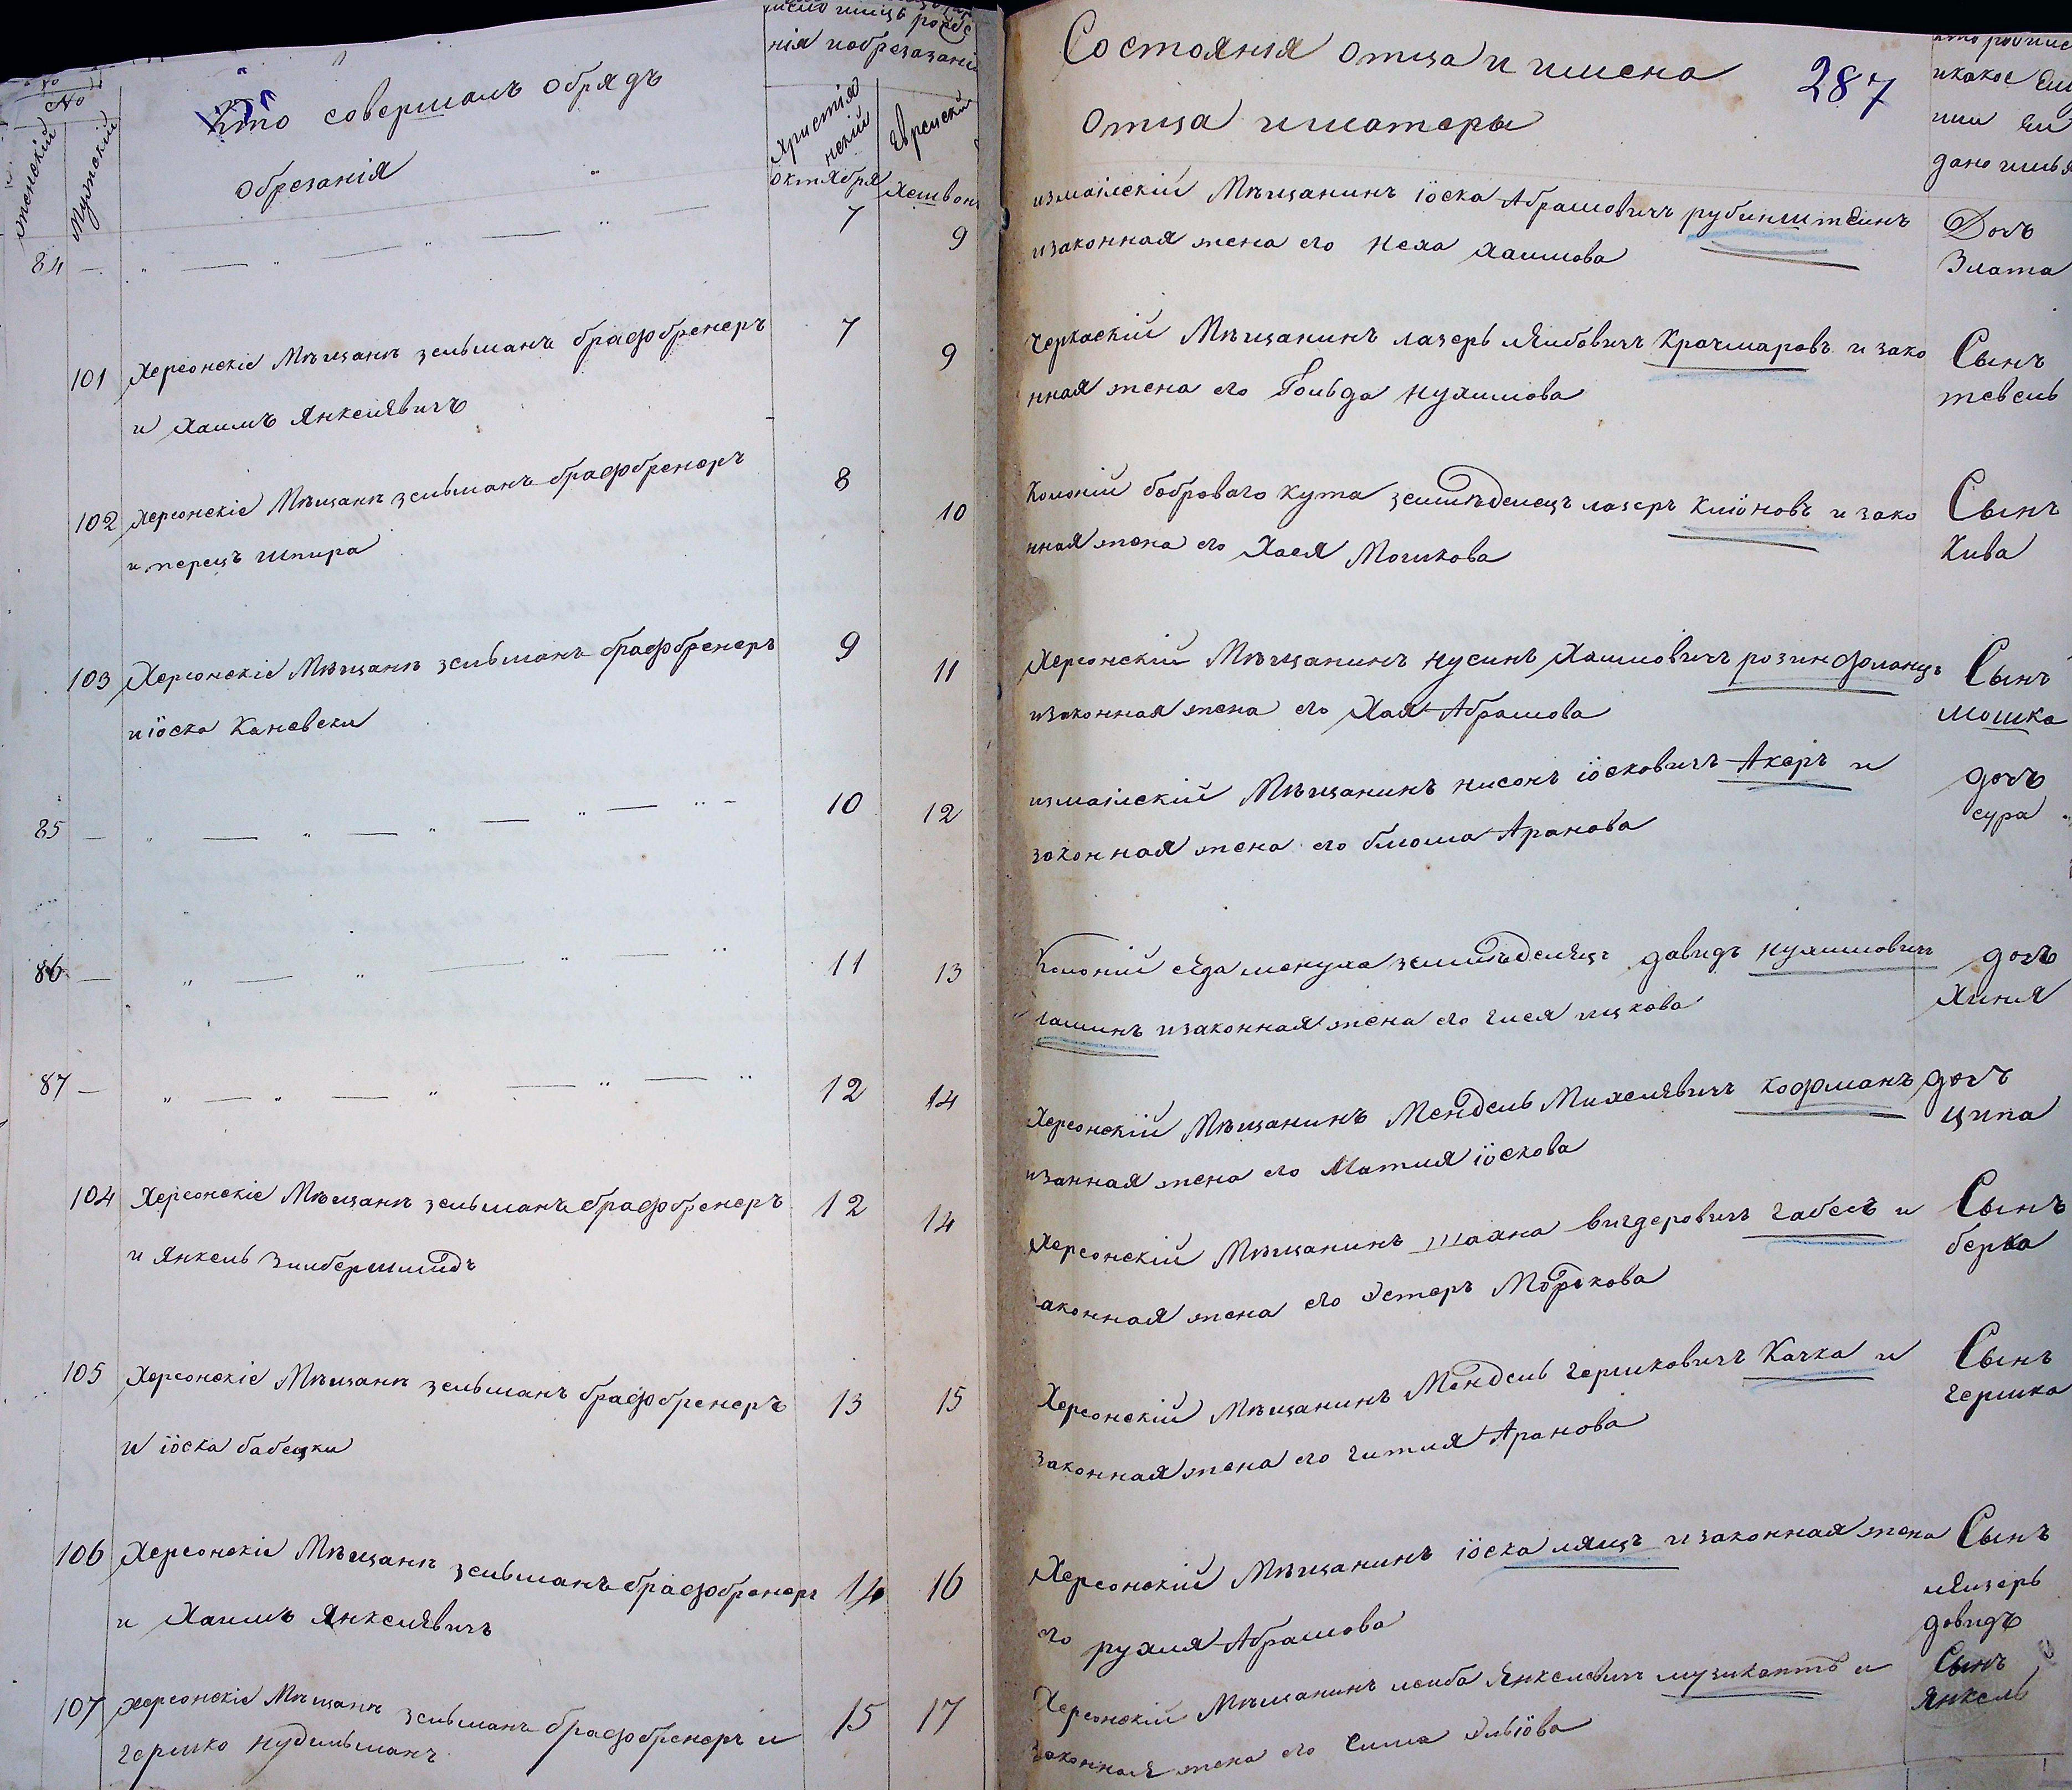 No
женскій
Мужскій
Кто совершалъ обрядъ
обрезанія
число имицъ рожде
нія иобрезанія
Христіа
нскій
Еврейскій
октября
Хешвон
84 — 7 9
101 Херсонскіе Мѣщане зельманъ брафбренеръ 7 9
и Хаимъ Янкелявичъ
102 Херсонскіе Мѣщане зельманъ брафбренеръ 8 10
и перецъ шпира
103 Херсонскіе Мѣщане зельманъ брафбренеръ 9 11
и іоска Каневски
85 — 10 12
86 — 11 13
87 — 12 14
104 Херсонскіе Мѣщане зельманъ брафбренеръ 12 14
и Янкель Зильбершмидъ
105 Херсонскіе Мѣщане зельманъ брафбренеръ 13 15
и іоска бабецки
106 Херсонскіе Мѣщане зельманъ брафбренеръ 14 16
и Хаимъ Янкелявичъ
107 Херсонскіе Мѣщане зельманъ брафбренеръ и 15 17
гершко нудельманъ
Состоянія отца и имена
287
отца иматери
икакое
дано имья
измаилскій Мѣщанинъ іоска Абрамовичъ рубинштеинъ Дочъ
изаконная жена его Неха Хаимова Злата
Черкаскій Мѣщанинъ лазеръ лейбовичъ Крачмаровъ и зако Сынъ
нная жена его Гольда Нухимова тевель
Колоній бобровато кута земледелецъ лазеръ Кліоновъ и зако Сынъ
нная жена его Хася Мошкова Кива
Херсонскій Мѣщанинъ нусинъ Хаимовичъ розинфланцъ Сынъ
изаконная жена его Хая Абрамова мошка
измаилскій Мѣщанинъ нисонъ іосковичъ Акеръ и дочъ
законная жена его блюма Аранова сура
Колоній сейдаменуха земледелецъ давидъ нухимовичъ дочъ
изаконная жена его ицкова Хиня
Херсонскій Мѣщанинъ Мендель Михелявичъ кофманъ дочъ
изанная жена его Матля іоскова ципа
Херсонскій Мѣщанинъ шахна вигдеровичъ габель и Сынъ
законная жена его Эстеръ Моркова берка
Херсонскій Мѣщанинъ Мендель гершковичъ Качка и Сынъ
законная жена его гитля Аранова гершка
Херсонскій Мѣщанинъ іоска ляцъ изаконная жена Сынъ
его рухля Абрамова лейзеръ
довидъ
Херсонскій Мѣщанинъ лейба Янкелевичъ музикантъ и Сынъ
законная жена его Сима Эльіова Янкель